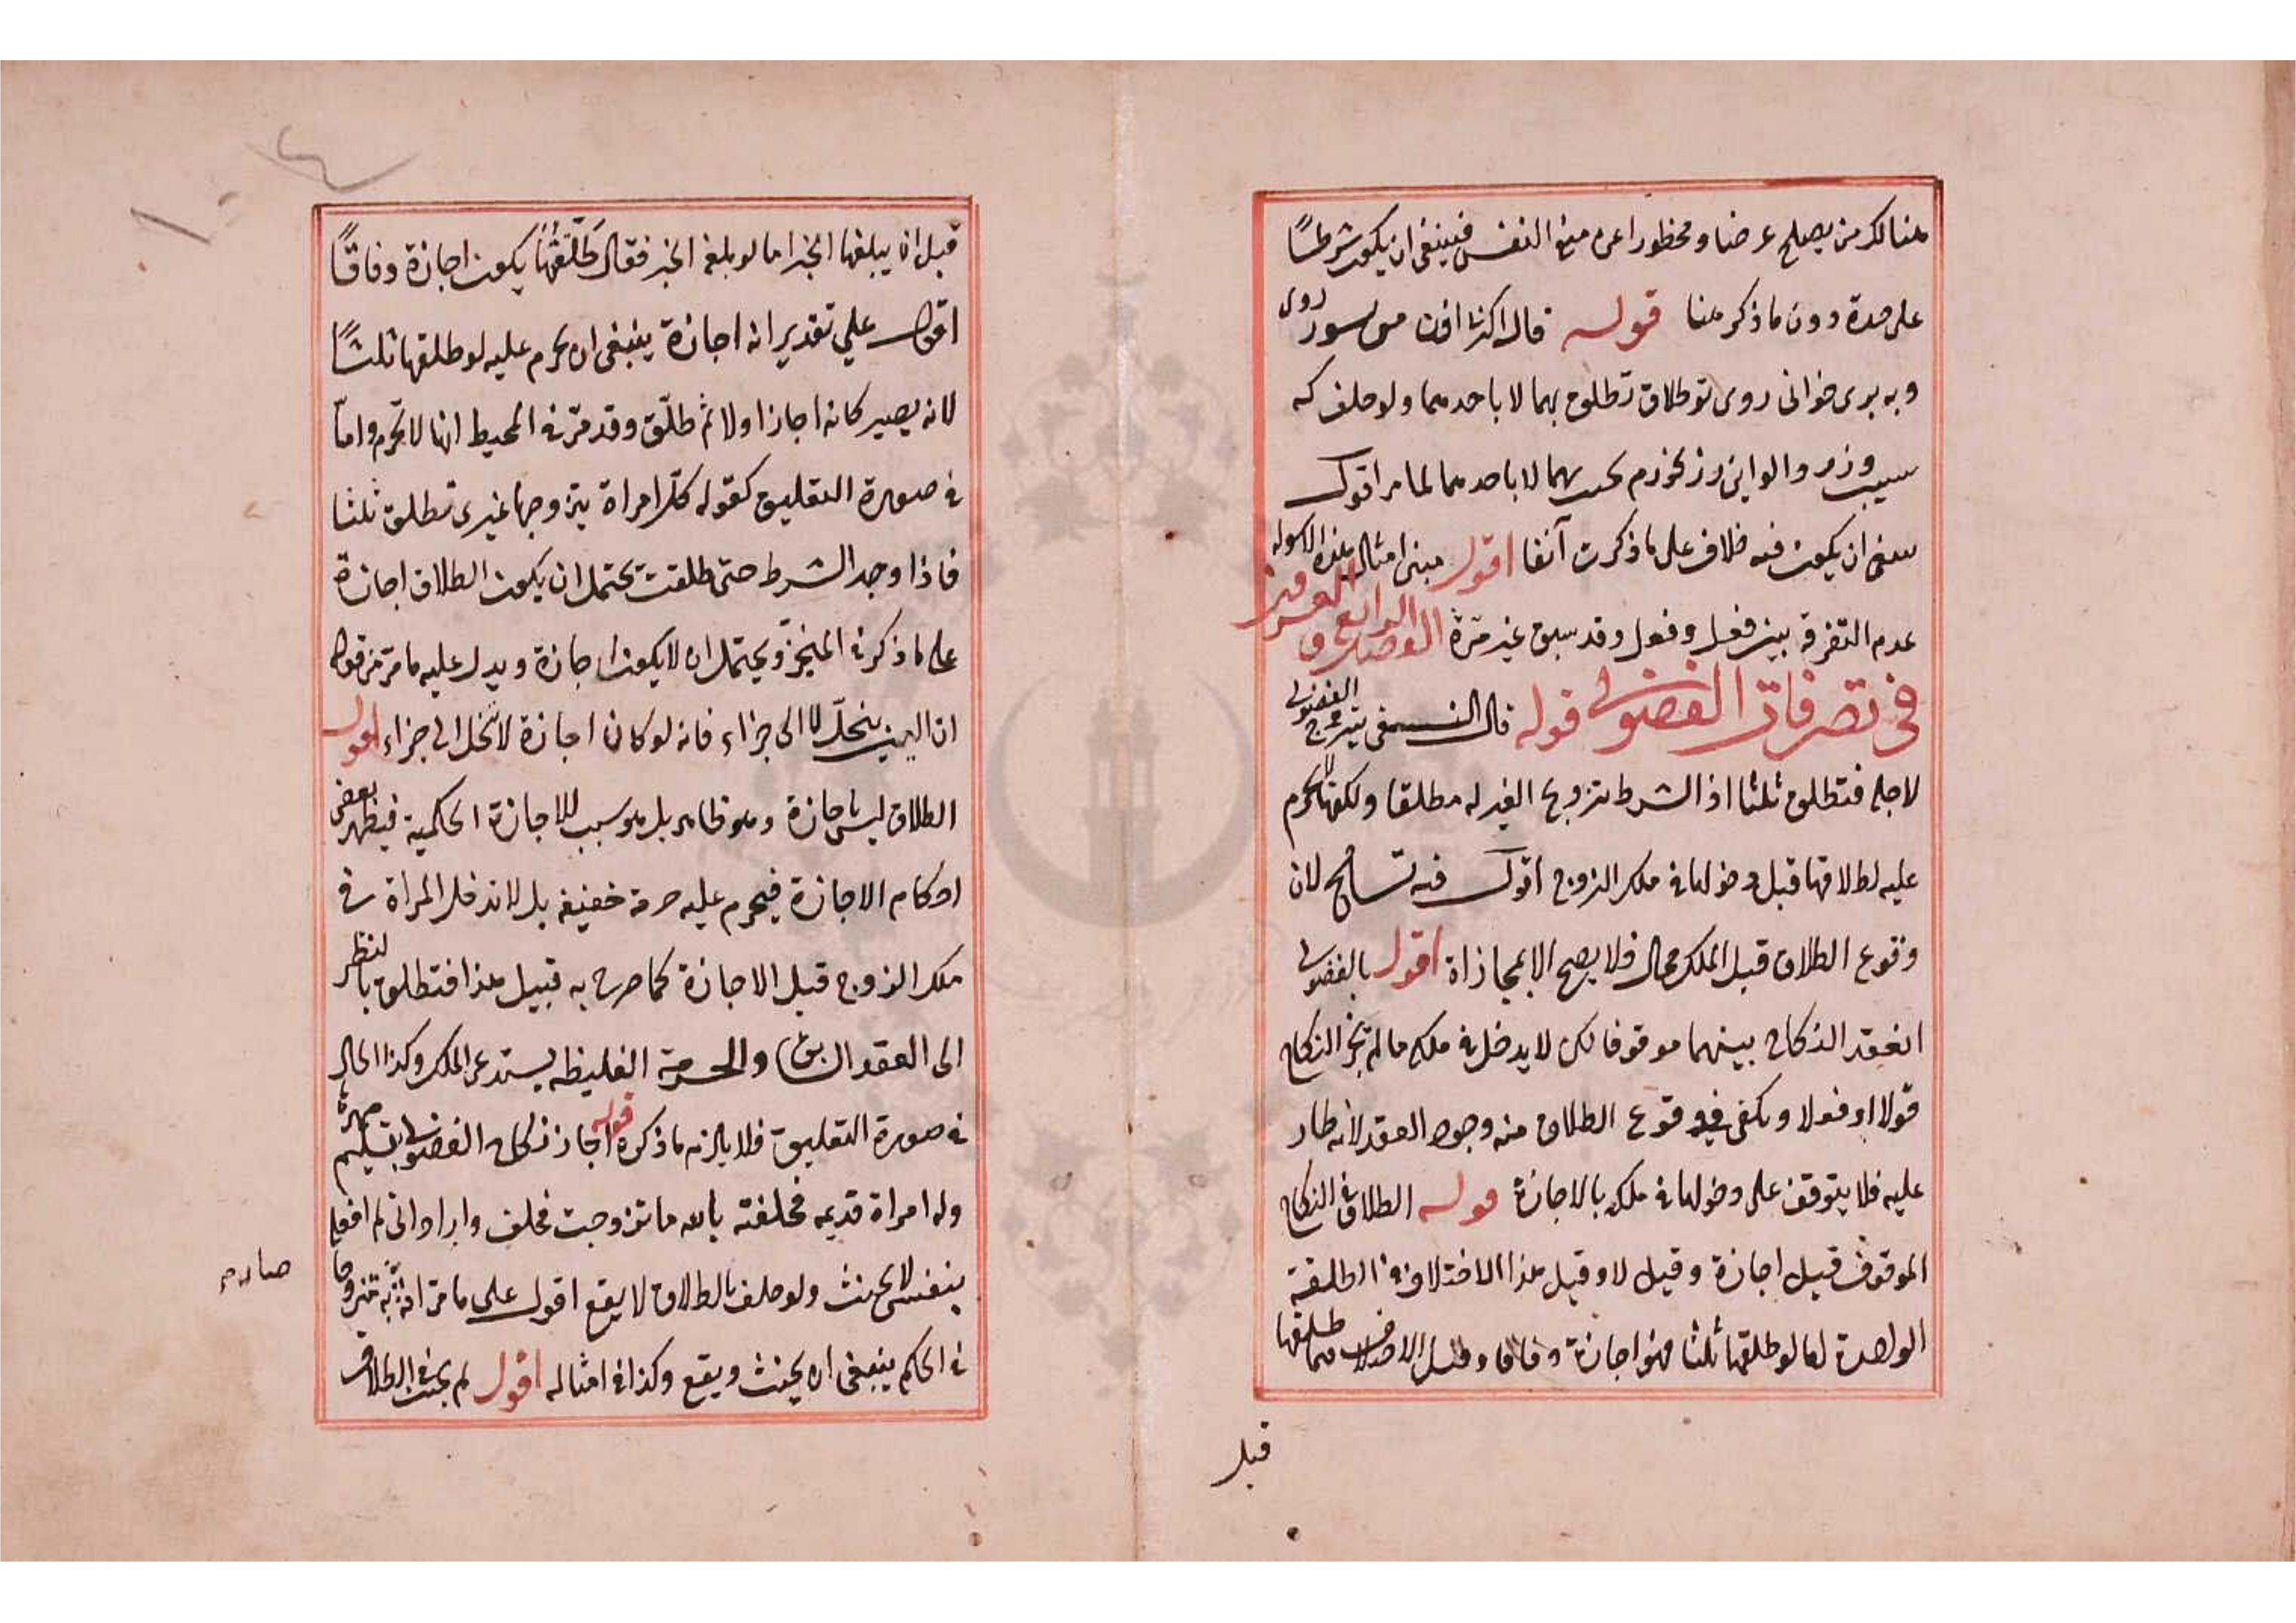 هنالك من يصلح عرضا ومحظورا عن منع النفس فينبغي ان يكون شرطًا
على حدة دون ما ذكر هنا قوله قال اكر
وبه برى خوانى روى تو طلاق تطلق بهما لا باحدهما ولو حلف كه
بهما لا باحدهما لما مر اقول
ان يكون فيه خلاف على ما ذكرت آنفا اقول مبنى امثال هذه
عدم التفرقة بين فعل وفعل وقد سبق غير مرة الفصل الرابع و العشرون
في تصرفات الفضولي قوله قال النسفي يتزوج الفضولي
لاجله فتطلق ثلثا اذ الشرط تزوج الغير له مطلقا ولكنها لا تحرم
عليه لطلاقها قبل دخولها في ملك الزوج اقول فيه تسامح لان
وقوع الطلاق قبل الملك محال فلا يصح الا بمجازاة اقول بالفضولي
انعقد النكاح بينهما موقوفا لكن لا يدخل في ملكه ما لم يجز النكاح
قولا او فعلا ويكفي في وقوع الطلاق منه وجود العقد لانه طار
عليه فلا يتوقف على دخولها في ملكه بالاجازة قوله الطلاق في النكاح
الموقوف قيل اجازة وقيل لا وقيل هذا الاختلاف في الطلقة
الواحدة اما لو طلقها ثلثا فهو اجازة وفاقا وقيل الاختلاف فيما طلقها
قبل
قبل ان يبلغها الخبر اما لو بلغه الخبر فقال طَلَّقْتُهَا يكون اجازة وفاقًا
اقول علي تقدير انه اجازة ينبغي ان يحرم عليه لو طلقها ثلثًا
لانه يصير كانه اجاز اولا ثم طلّق وقد مرّ في المحيط انها لا تحرم وامّا
في صورة التعليق كقوله كلّ امراة يتزوجها غيرى تطلق ثلثا
فاذا وجد الشرط حتى طلقت يحتمل ان يكون الطلاق اجازة
على ما ذكر في المنجّز ويحتمل ان لا يكون اجازة ويدل عليه ما مرّ من قوله
ان اليمين ينحلّ لا الى جزاء فانه لو كان اجازة لانحل الى جزاء اقول
الطلاق ليس باجازة وهو ظاهر بل هو سبب للاجازة الحكمية فيظهر بعض
احكام الاجازة فيحرم عليه حرمة خفيفة بل لا تدخل المراة في
ملك الزوج قبل الاجازة كما صرح به قبيل هذا فتطلق بالنظر
الى العقد السابق والحرمة الغليظه يستدعى الملك وكذا الحال
في صورة التعليق فلا يلزم ما ذكره قوله اجاز نكاح الفضولي بتسليم مهره
وله امراة قديمه فحلفته بالله ما تزوجت فحلف واراد انى لم افعل
بنفسى لا يحنث ولو حلف بالطلاق لا يقع اقول على ما مرّ
في الحكم ينبغي ان يحنث ويقع وكذا في امثاله اقول لم يحنث في الطلاق